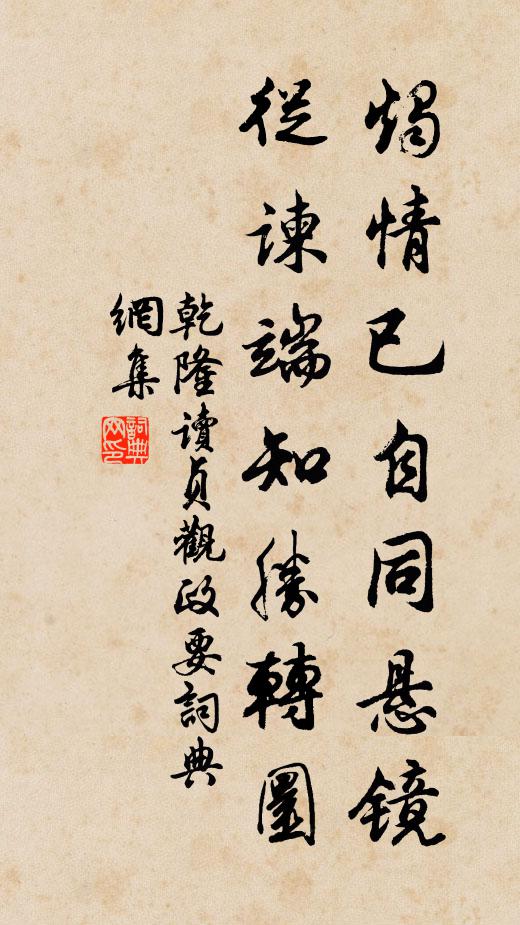 燭情已自同悬镜
從諫端知勝轉圜
乾隆讀貞觀政要詞典
網集
詞典
网印